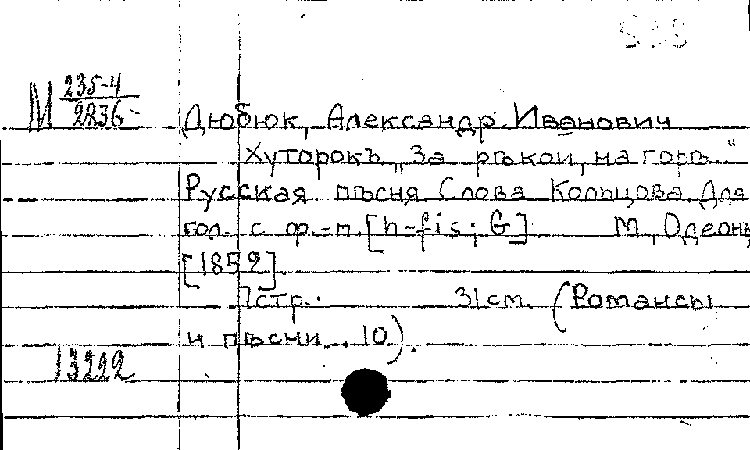 М 235-4
2836
Дюбюк, Александр Иванович
Хуторокъ „За рѣкой, на горѣ..."
Русская пѣсня Слова Кольцова. Для
гол. с ф.-п. [h-fis; G] М, Одеонъ,
[1852].
7стр. 31см. (Романсы
и пѣсни... 10).
13222